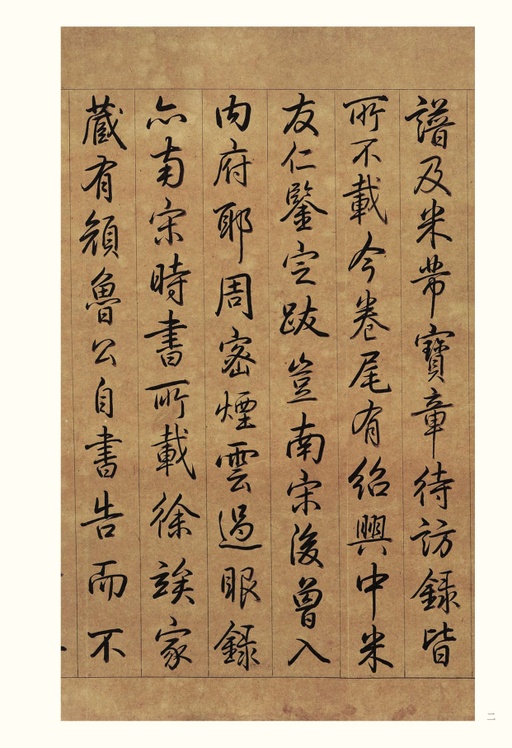 譜及米芾寶章待訪錄皆
所不載今卷尾有紹興中米
友仁鑒定跋豈南宋後曾入
內府耶周密煙雲過眼錄
亦南宋時書所載徐談家
藏有顏魯公自書告而不
二